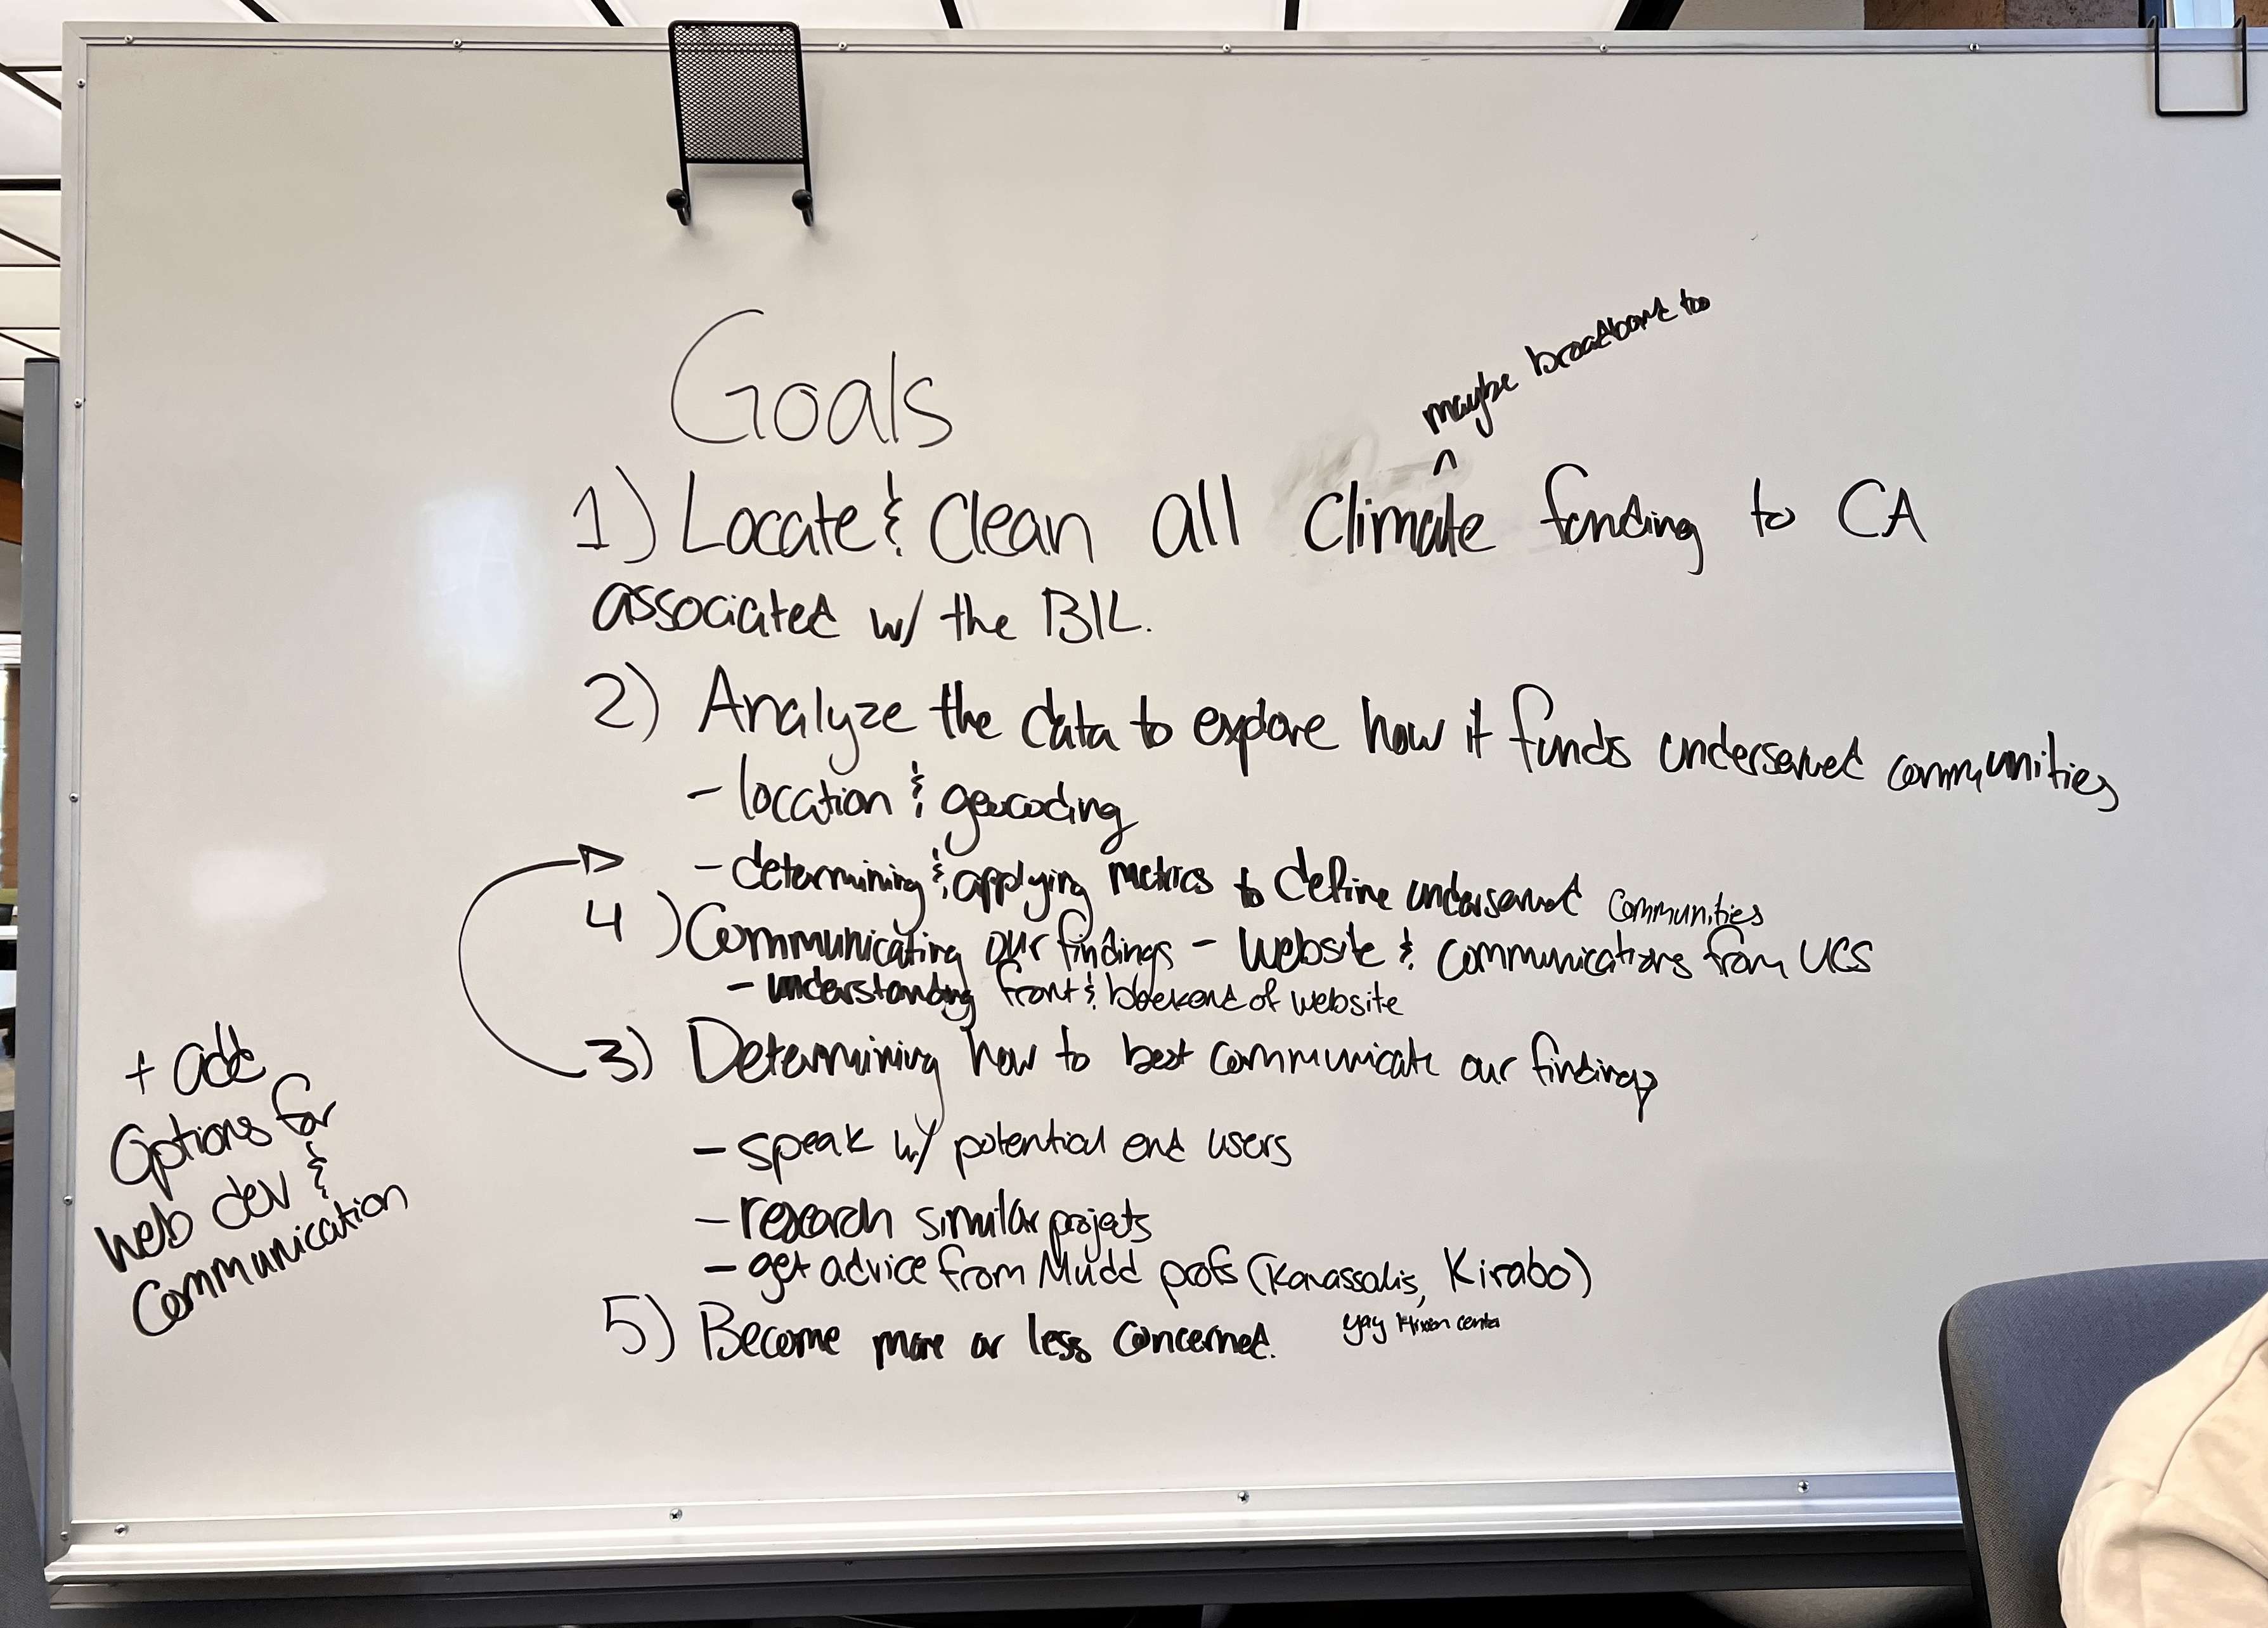 Goals
maybe broadband too
^
1) Locate & Clean all Climate funding to CA
associated w/ the BIL.
2) Analyze the data to explore how it funds underserved communities
- location & geocoding
- determining & applying metrics to define underserved communities
4) Communicating our findings - Website & communications from UCS
- understanding front & backend of website
3) Determining how to best communicate our findings
- speak w/ potential end users
- research similar projects
- get advice from Mudd profs (Kavassalis, Kirabo)
yay Hixon center
5) Become more or less concerned.
+ add
Options for
web dev &
Communication